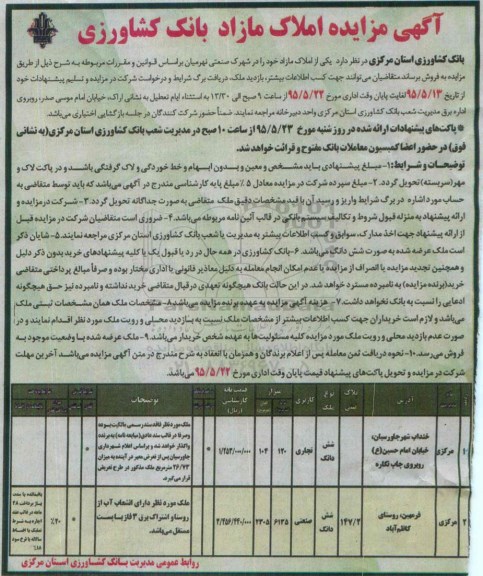 آگهی مزایده املاک مازاد بانک کشاورزی
بانک کشاورزی استان مرکزی در نظر دارد یکی از املاک مازاد خود را در شهرک صنعتی نهرمیان براساس قوانین و مقررات مربوطه به شرح ذیل از طریق
مزایده به فروش برساند متقاضیان می‌توانند جهت کسب اطلاعات بیشتر، بازدید ملک، دریافت برگ شرایط و درخواست شرکت در مزایده و تسلیم پیشنهادات خود
از تاریخ ۹۵/۵/۱۳ لغایت پایان وقت اداری مورخ ۹۵/۵/۲۲ از ساعت ۹ صبح الی ۱۲/۳۰ به استثناء ایام تعطیل به نشانی اراک، خیابان امام موسی صدر، روبروی
اداره برق مدیریت شعب بانک کشاورزی استان مرکزی واحد دبیرخانه مراجعه نمایند. ضمناً حضور شرکت کنندگان در جلسه بازگشایی اختیاری می‌باشد.
* پاکت‌های پیشنهادات ارائه شده در روز شنبه مورخ ۹۵/۵/۲۳ از ساعت ۱۰ صبح در مدیریت شعب بانک کشاورزی استان مرکزی (به نشانی
فوق) در حضور اعضا کمیسیون معاملات بانک مفتوح و قرائت خواهد شد.
توضیحات و شرایط: ۱- مبلغ پیشنهادی باید مشخص و معین و بدون ابهام و خط خوردگی و لاک گرفتگی باشد و در پاکت لاک و
مهر (سربسته) تحویل گردد. ۲- مبلغ سپرده شرکت در مزایده معادل ۵٪ مبلغ پایه کارشناسی مندرج در آگهی می‌باشد که باید توسط متقاضی به
حساب مورد اشاره در برگ شرایط واریز و رسید آن با قید مشخصات دقیق ملک متقاضی به صورت جداگانه تحویل گردد. ۳- شرکت در مزایده و
ارائه پیشنهاد به منزله قبول شروط و تکالیف سیستم بانکی در قالب آئین نامه مربوطه می‌باشد. ۴- ضروری است متقاضیان شرکت در مزایده قبل
از ارائه پیشنهاد جهت اخذ مدارک، سوابق و کسب اطلاعات بیشتر به مدیریت یا شعب بانک کشاورزی استان مرکزی مراجعه نمایند. ۵- شایان ذکر
است ملک عرضه شده به صورت شش دانگ می‌باشد. ۶- بانک کشاورزی در همه حال در رد یا قبول یک یا کلیه پیشنهادهای خرید بدون ذکر دلیل
و همچنین تجدید مزایده یا انصراف از مزایده یا عدم امکان انجام معامله به دلیل معاذیر قانونی یا اداری مختار بوده و صرفاً مبالغ پرداختی متقاضی
خرید (برنده مزایده) به نامبرده مسترد خواهد شد. در این حالت بانک هیچگونه تعهدی در قبال متقاضی خرید نداشته و نامبرده نیز حق هیچگونه
ادعایی را نسبت به بانک نخواهد داشت. ۷- هزینه آگهی مزایده به عهده برنده مزایده می‌باشد. ۸- مشخصات ملک همان مشخصات ثبتی ملک
می‌باشد و لازم است خریداران جهت کسب اطلاعات بیشتر از مشخصات ملک نسبت به بازدید محلی و رویت ملک مورد نظر اقدام نمایند و در
صورت عدم بازدید محلی و رویت ملک مورد مزایده کلیه مسئولیت‌ها به عهده شخص خریدار می‌باشد. ۹- ملک عرضه شده با وضعیت موجود به
فروش می‌رسد. ۱۰- نحوه دریافت ثمن معامله پس از اعلام برندگان و همزمان با انعقاد به شرح مندرج در متن آگهی مزایده می‌باشد آخرین مهلت
شرکت در مزایده و تحویل پاکت‌های پیشنهاد قیمت پایان وقت اداری مورخ ۹۵/۵/۲۲ می‌باشد.
آدرس پلاک ثبتی نوع ملک کاربری متراژ قیمت پایه کارشناسی (ریال) توضیحات
۱ مرکزی خنداب شهر جاورسیان، خیابان امام حسین(ع) روبروی چاپ نگاره شش دانگ تجاری ۱۲۰ ۱۰۴ * *
ملک مورد نظر فاقد سند رسمی مالکیت بوده
۲ مرکزی فرمهین، روستای کاظم‌آباد ۱۴۷/۲ شش دانگ صنعتی ۶۱۳۵ ۲۳۰۵ * ۲۰٪
ملک مورد نظر دارای انشعاب آب از
روستا و اشتراک برق ۳ فاز با پست
مستقل می‌باشد.
روابط عمومی مدیریت بانک کشاورزی استان مرکزی